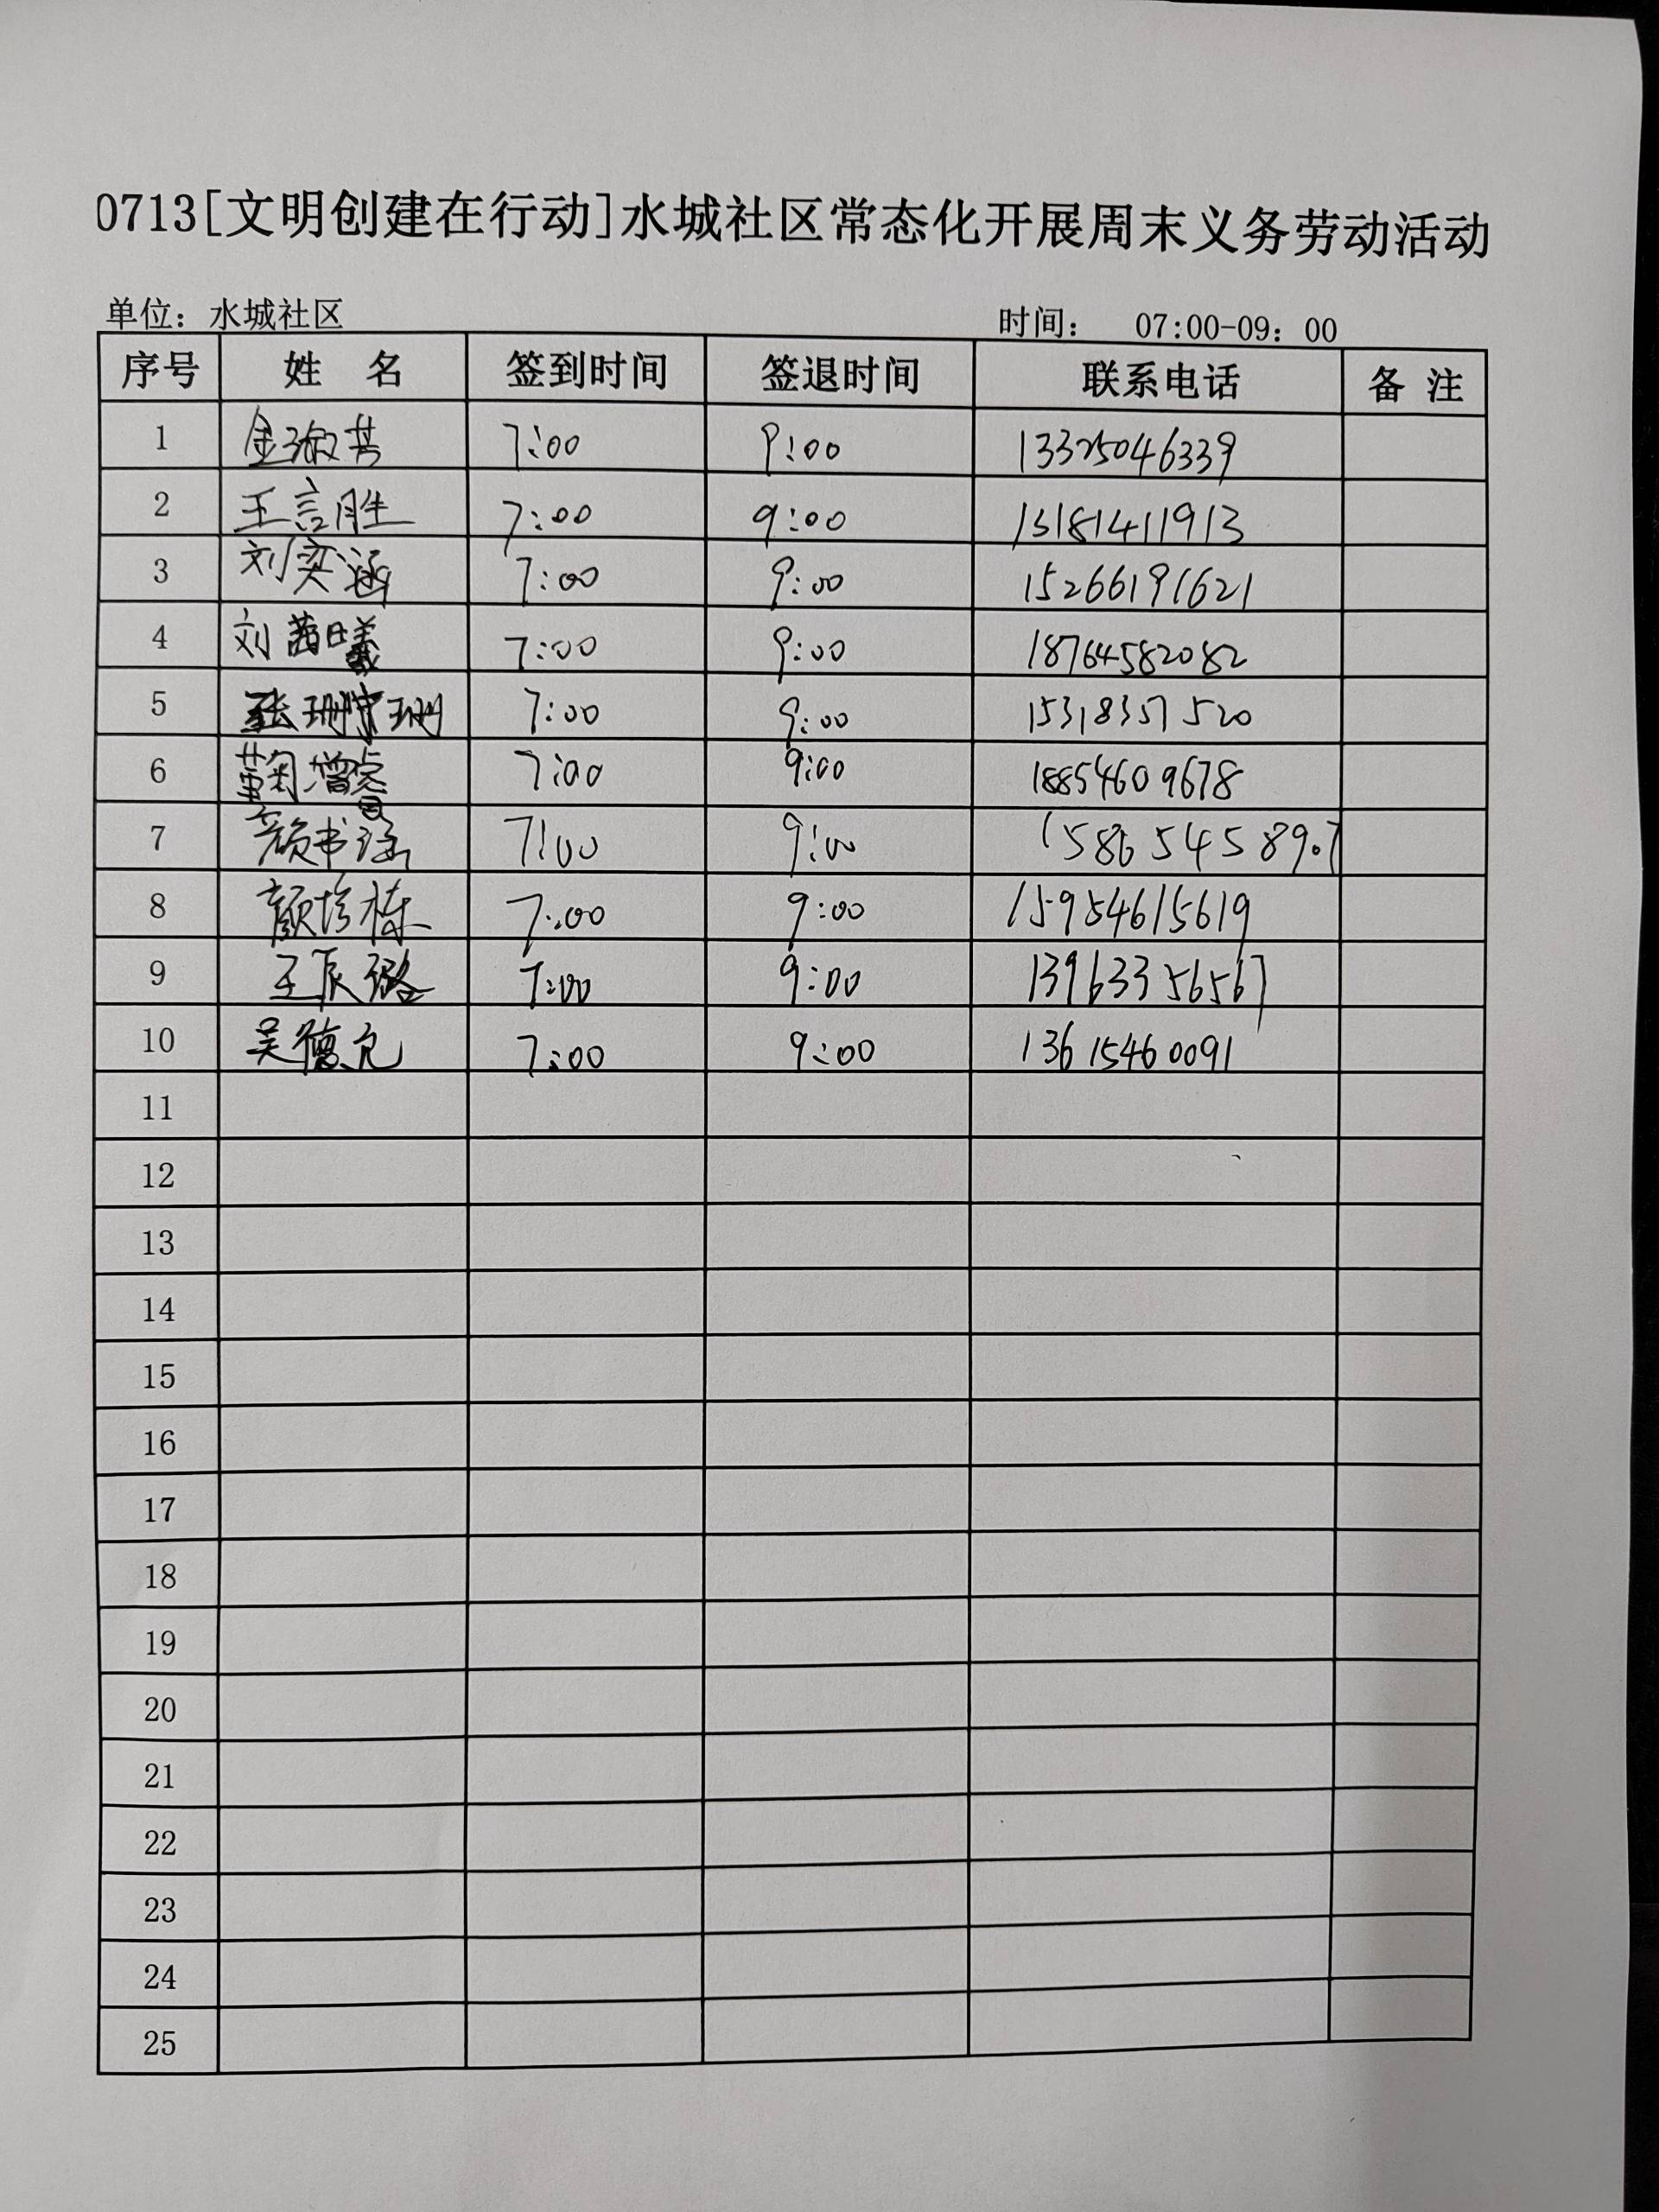 0713[文明创建在行动]水城社区常态化开展周末义务劳动活动
单位：水城社区 时间： 07:00-09：00
序号 姓 名 签到时间 签退时间 联系电话 备 注
1 金淑芳 7:00 9:00 13325046339
2 王言胜 7:00 9:00 13181411913
3 刘奕涵 7:00 9:00 15266191621
4 刘茜曦 7:00 9:00 18764582082
5 张 7:00 9:00 15318357520
6 增睿 7:00 9:00 18854609678
7 颜书涵 7:00 9:00 15865458907
8 颜培栋 7:00 9:00 15954615619
9 王辰璐 7:00 9:00 13963356567
10 吴德允 7:00 9:00 13615460091
11
12
13
14
15
16
17
18
19
20
21
22
23
24
25